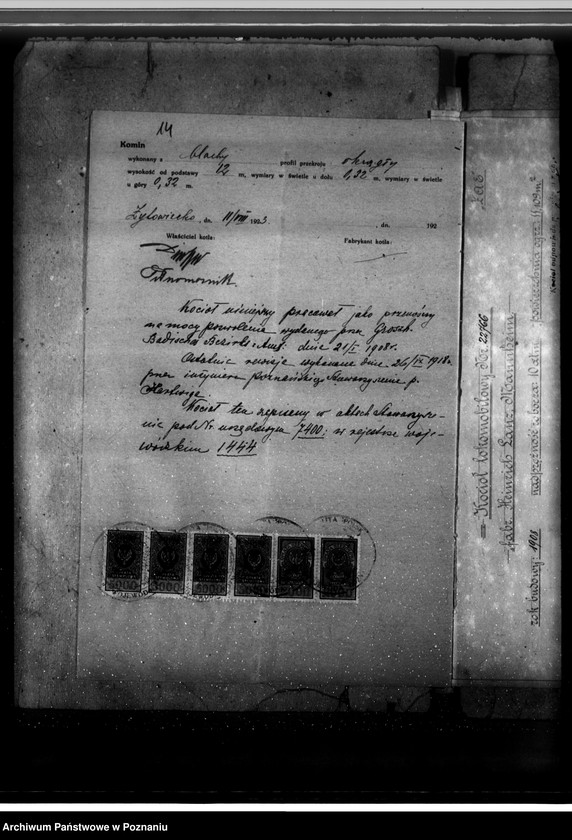 14
Komin
wykonany z blachy profil przekroju okrągły
wysokość od podstawy 12 m, wymiary w świetle u dołu 0,32 m, wymiary w świetle
u góry 0,32 m.
Żytowiecko, dn. 11/VIII 1923 , dn. 192
Właściciel kotła: Fabrykant kotła:
Pełnomocnik.
Kocioł niniejszy pracował jako przenośny
na mocy pozwolenia wydanego przez Grossh.
Badische Bezirks Amt. dnia 21/I 1908 r.
Ostatnia rewizja wykonana dnia 26/VII 1918 r.
przez inżyniera poznańskiego Stowarzyszenia p.
Kocioł ten zapisany w aktach Stowarzysze-
nia pod Nr. urzędowym 7400: w rejestrze woje-
wódzkim 1444
Kocioł lokomobilowy Nr. 22766
fabr. Heinrich Lanz, Mannheim
rok budowy: 1908 nadprężność robocza 10 atm. powierzchnia ogrz. 11,09 m²
Archiwum Państwowe w Poznaniu